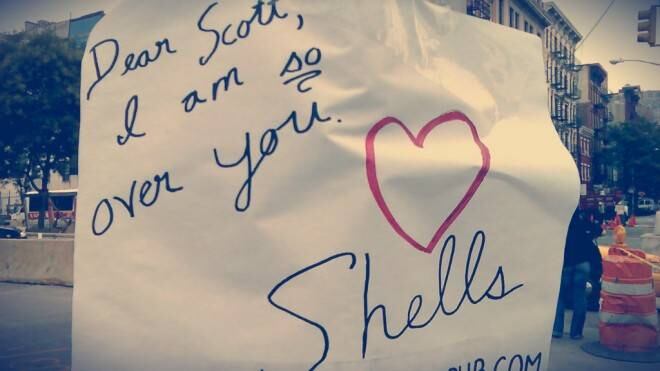 Dear Scott,
I am so
over you.
Shells
.COM